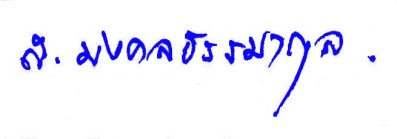 ส. มงคลธรรมากุล.